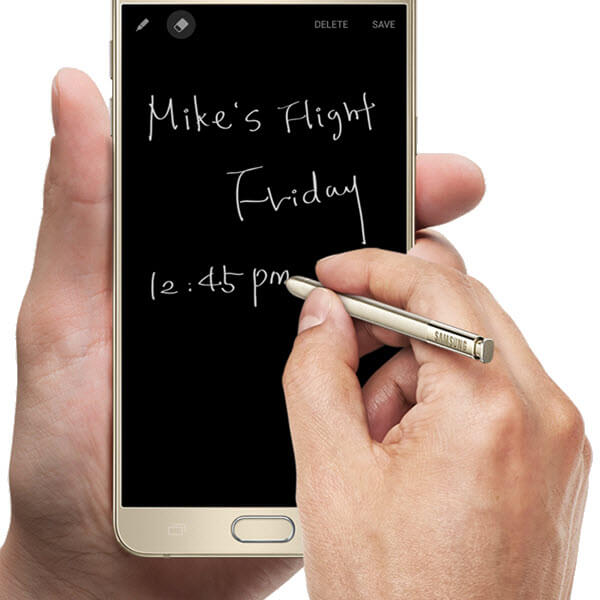 DELETE SAVE
Mike's Flight
Friday
12:45 pm
SAMSUNG